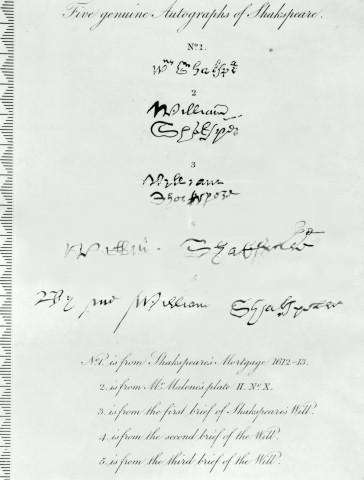 Five genuine Autographs of Shakspeare.
No. 1.
Wm Shakspe
2
William
Shakspe
3
William
Shakspere
Willm Shakspere
By me William Shakspeare
No. 1. is from Shakspeare's Mortgage 1612-13.
2. is from Mr. Malone's plate II. No. X.
3. is from the first brief of Shakspeare's Will.
4. is from the second brief of the Will.
5. is from the third brief of the Will.